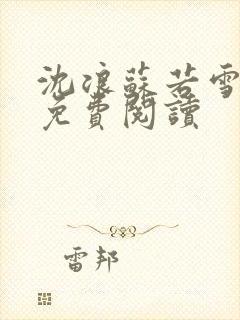 沈浪蘇若雪
免費閱讀
雷邦